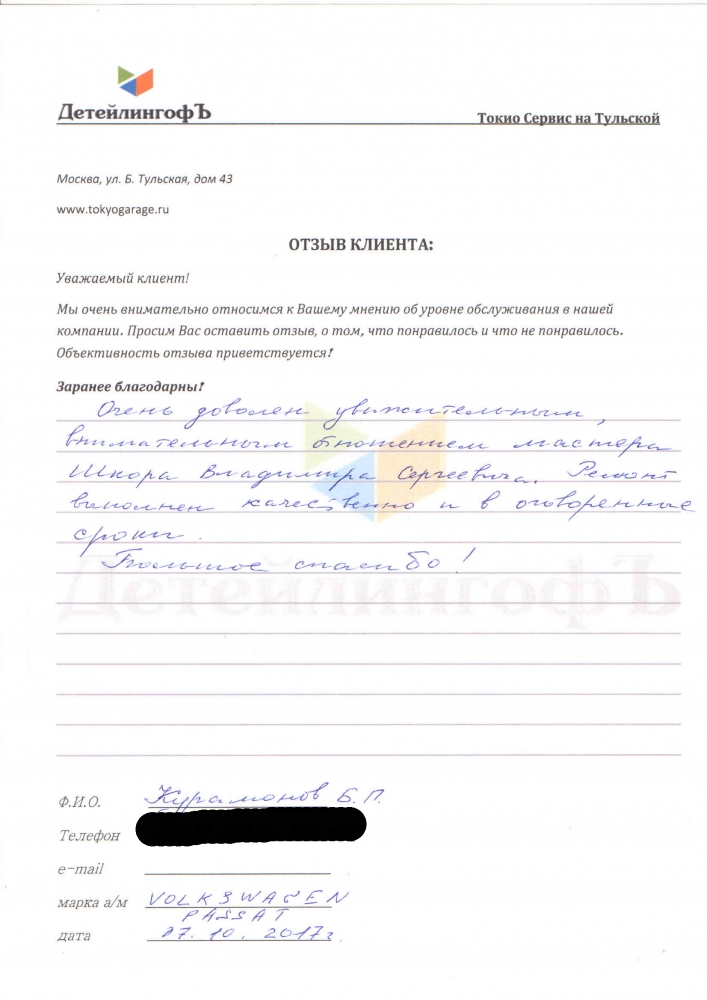 ДетейлингофЪ
Токио Сервис на Тульской
Москва, ул. Б. Тульская, дом 43
www.tokyogarage.ru
ОТЗЫВ КЛИЕНТА:
Уважаемый клиент!
Мы очень внимательно относимся к Вашему мнению об уровне обслуживания в нашей
компании. Просим Вас оставить отзыв, о том, что понравилось и что не понравилось.
Объективность отзыва приветствуется!
Заранее благодарны!
Очень доволен уважительным,
внимательным отношением мастера
Шкора Владимира Сергеевича. Ремонт
выполнен качественно и в оговоренные
сроки.
Большое спасибо!
ДетейлингофЪ
Ф.И.О. Курамонов Б.П.
Телефон
e-mail
марка а/м VOLKSWAGEN
PASSAT
дата 17.10.2017г